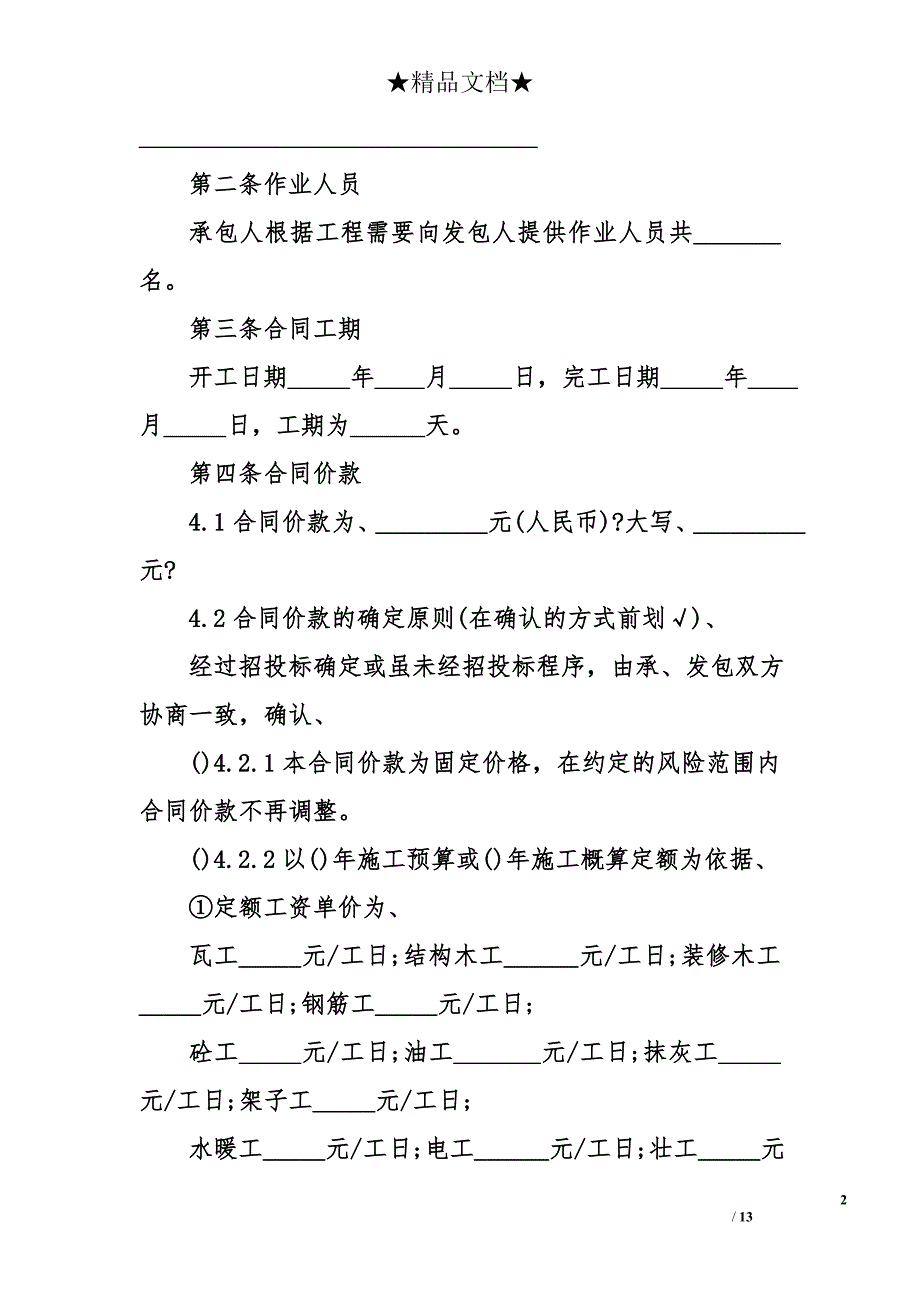 ★精品文档★
________________________________
第二条作业人员
承包人根据工程需要向发包人提供作业人员共_______
名。
第三条合同工期
开工日期_____年____月_____日，完工日期_____年____
月_____日，工期为______天。
第四条合同价款
4.1合同价款为、_________元(人民币)?大写、_________
元?
4.2合同价款的确定原则(在确认的方式前划√)、
经过招投标确定或虽未经招投标程序，由承、发包双方
协商一致，确认、
()4.2.1本合同价款为固定价格，在约定的风险范围内
合同价款不再调整。
()4.2.2以()年施工预算或()年施工概算定额为依据、
①定额工资单价为、
瓦工_____元/工日;结构木工______元/工日;装修木工
_____元/工日;钢筋工_____元/工日;
砼工_____元/工日;油工_______元/工日;抹灰工_____
元/工日;架子工_____元/工日;
水暖工_____元/工日;电工______元/工日;壮工_____元
2
/ 13